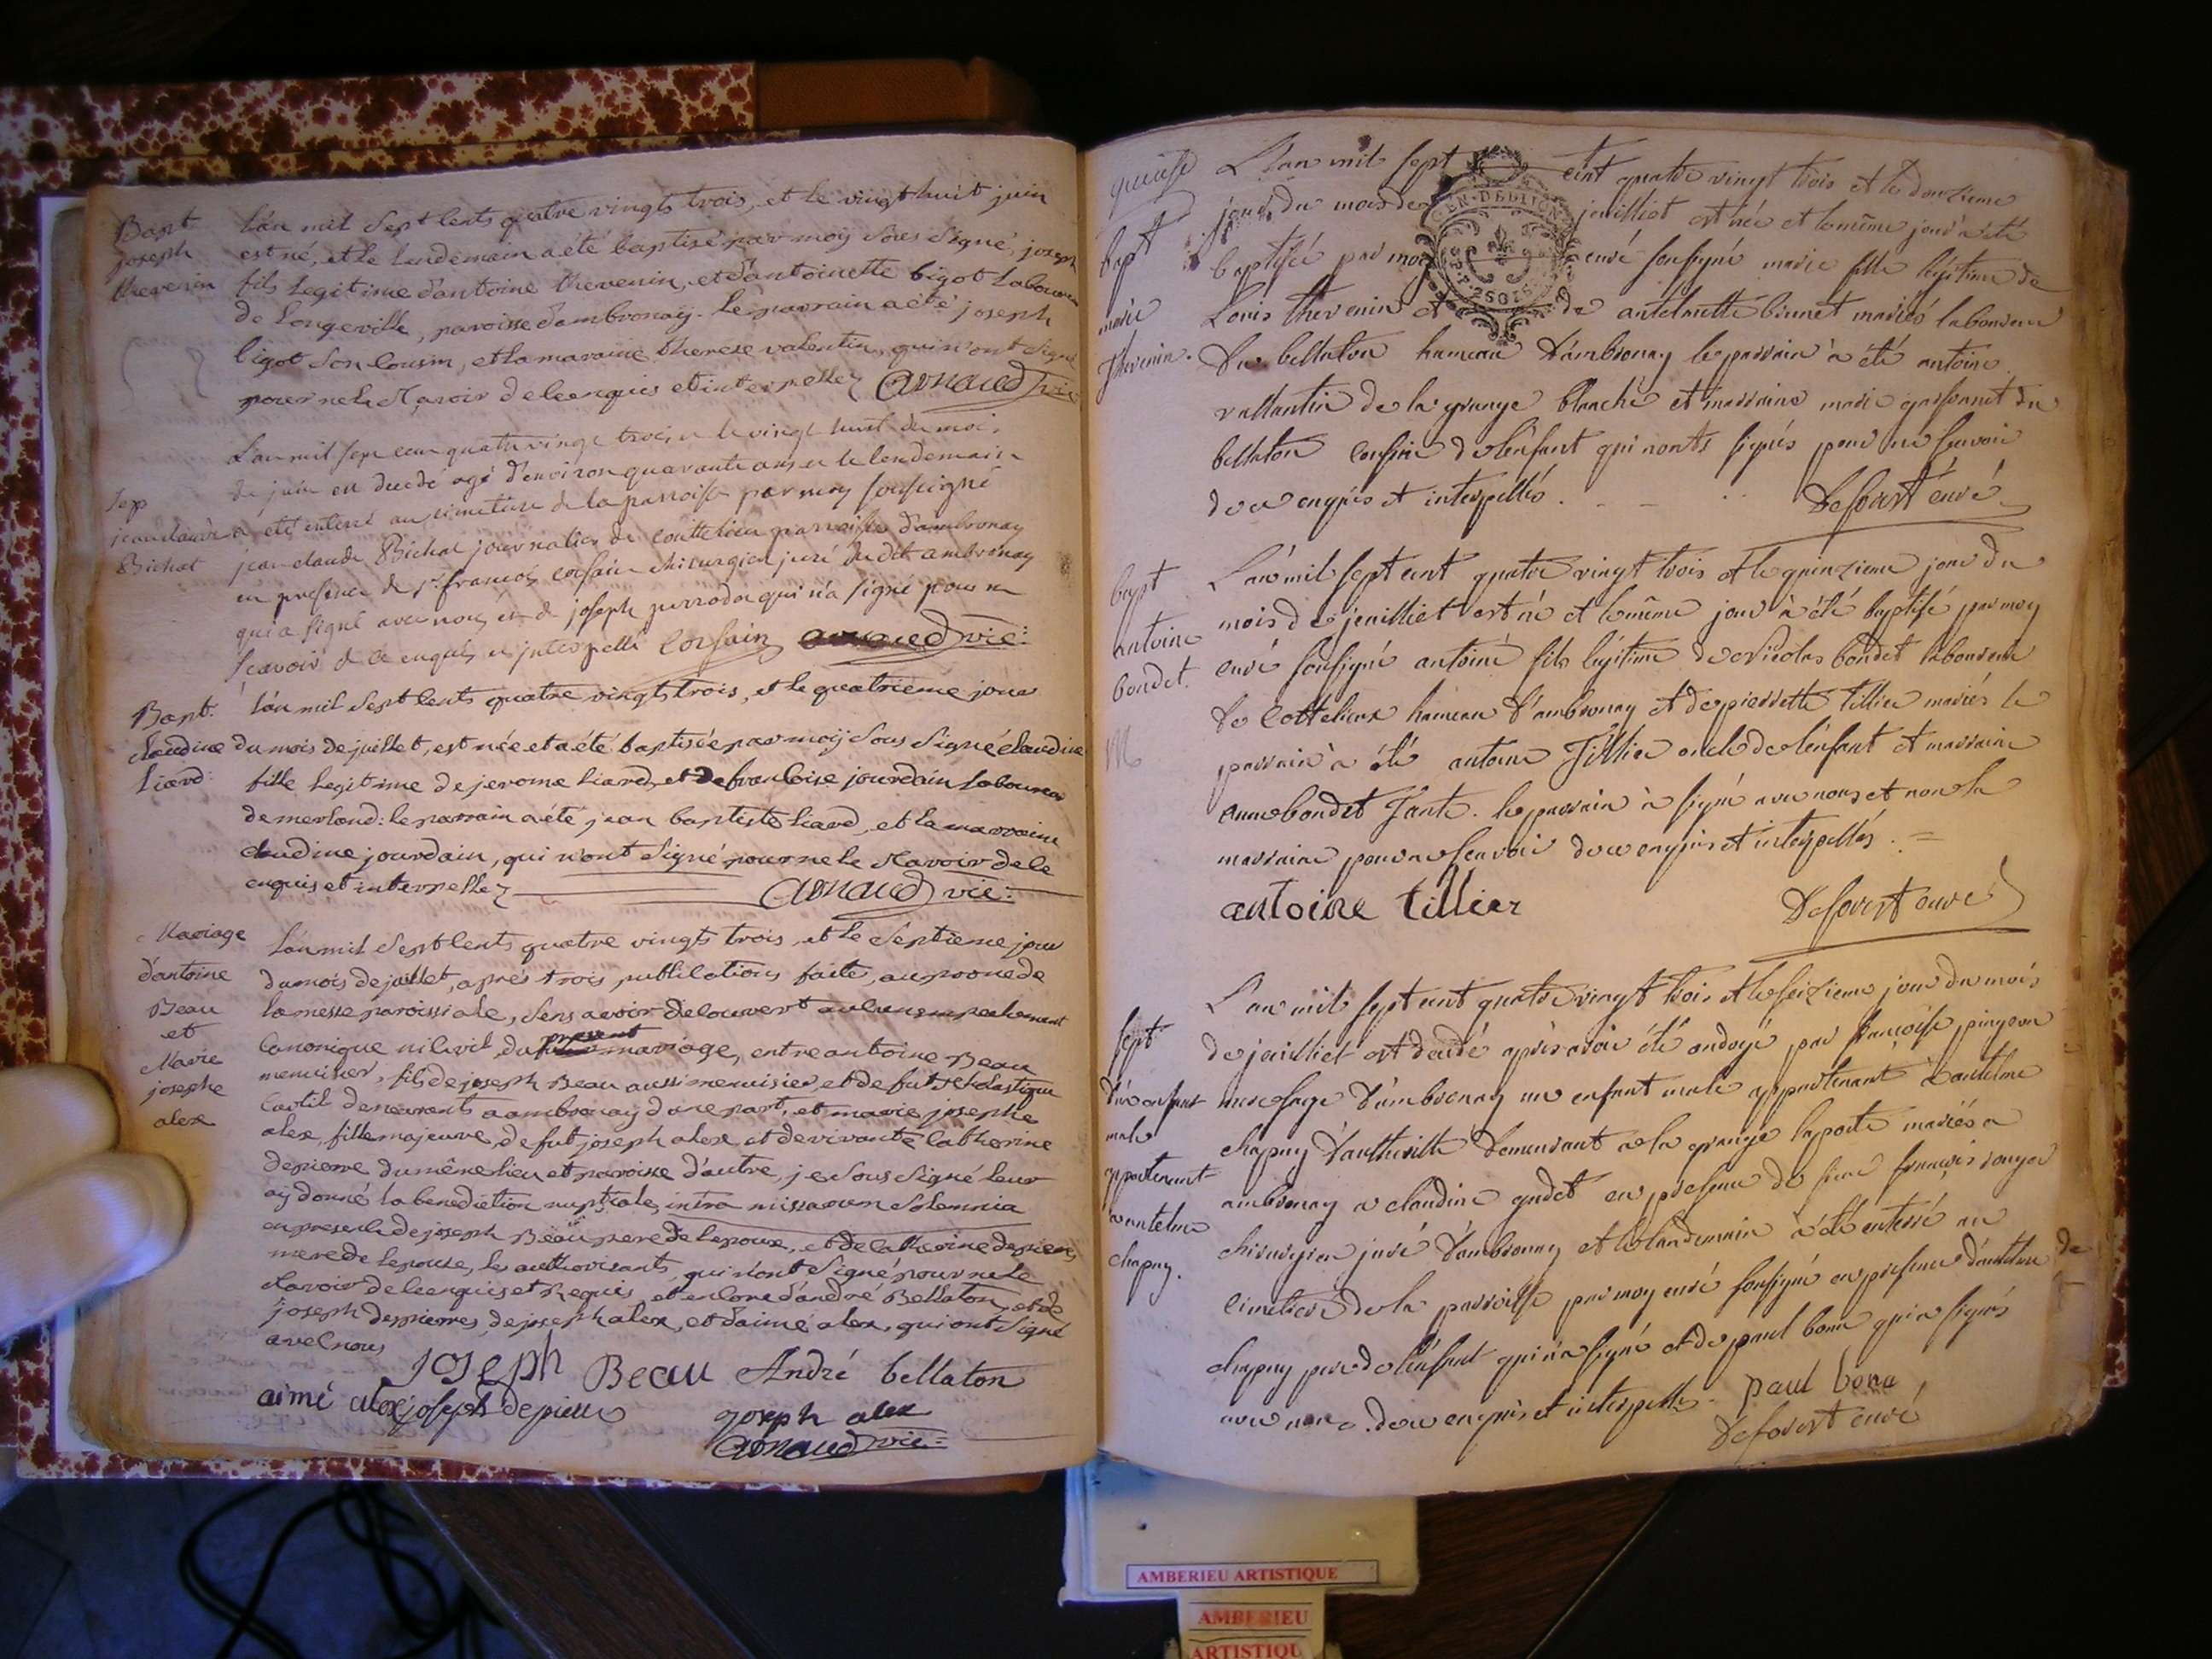 Bapt
joseph
thevenin
L'an mil Sept Cents quatre vingts trois, et le vingt huit juin
est né, et le Lendemain a été baptisé par moy Sous Signé, joseph
fils Legitime d'antoine thevenin, et d'antoinette bigot Laboureur
de Longeville, paroisse d'ambronay. Le parrain a été joseph
bigot Son Cousin, et la maraine therese valentin, qui n'ont Signé
pour ne le Sçavoir de ce enquis et interpellez Arnaud vic:
Sep
jean claude
Bichat
L'an mil sept cen quatre vingt trois et le vingt huit du mois
de juin est decedé agé d'environ quarante ans et le lendemain
a eté enterré au cimetiere de la parroisse par moy soussigné
jean claude Bichat journalier de couttelieu parroisse d'ambronay
en presence de sr françois corsain chirurgien juré du dit ambronay
qui a signé avec nous et de joseph qui n'a signé pour ne
scavoir de ce enquis et interpellé Corsain Arnaud vic:
Bapt.
claudine
Liard:
L'an mil Sept Cents quatre vingts trois, et le quatrieme jour
du mois de juillet, est née et a été baptisée par moy Sous Signé claudine
fille Legitime de jerome Liard, et de francoise jourdain Laboureur
de merland: le parrain a été jean baptiste Liard, et la marraine
claudine jourdain, qui n'ont Signé pour ne le Sçavoir de ce
enquis et interpellez Arnaud vic:
Mariage
d'antoine
Beau
et
Marie
josephe
alex
L'an mil Sept Cents quatre vingts trois, et le Septieme jour
du mois de juillet, après trois publications faites, au prone de
la messe paroissiale, Sans avoir decouvert aucun empechement
Canonique ni Civil, du present mariage, entre antoine Beau
menuisier, fils de joseph Beau aussi menuisier, et de fut Scholastique
Cartil demeurants a ambronay d'une part, et marie josephe
alex, fille majeure, de fut joseph alex et de vivante Catherine
depierre du même lieu et paroisse d'autre, je Sous Signé leur
ay donné la benediction nuptiale, intra missarum Solemnia
en presence de joseph Beau pere de l'epoux, et de catherine depierre
mere de l'epouse, les authorisants, qui n'ont Signé pour ne le
Sçavoir de ce enquis et Requis, et encore d'andré Bellaton, et de
joseph depierres, de joseph alex, et d'aimé alex, qui ont Signé
avec nous
joseph Beau André bellaton
aimé alex joseph depierre
joseph alex
Arnaud vic:
bapt
marie
Thevenin.
L'an mil sept cent quatre vingt trois et le douzieme
jour du mois de jeuilliet est née et le même jour à été
baptisée par moy curé soussigné marie fille légitime de
Louis thevenin et de antelmette brunet mariés laboureur
Du bellaton hameau D'ambronay le parrain à été antoine
vallantin de la grange blanche et marraine marie du
bellaton cousine de l'enfant qui n'onts signés pour ne scavoir
de ce enquis et interpellés. Deforest curé
bapt
antoine
bondet.
L'an mil sept cent quatre vingt trois et le quinzieme jour du
mois de jeuilliet est né et le même jour à été baptisé par moy
curé soussigné antoine fils légitime de Nicolas bondet laboureur
De Cottelieux hameau D'ambronay et de pierrette tillier mariés le
parrain à été antoine Tillier oncle de l'enfant et marraine
anne bondet Tante. le parrain à signé avec nous et non la
marraine pour ne scavoir de ce enquis et interpellés.
antoine tillier
Deforest curé
sept
D'un enfant
male
appartenant
a antelme
chapuy.
L'an mil sept cent quatre vingt trois et le seizieme jour du mois
de jeuilliet est decedé après avoir été ondoyé par françoise pingeon
mere sage D'ambronay un enfant male appartenant à antelme
chapuy D'autheville Demeurant a la grange laporte mariés a
ambronay a claudine gudet en presence de sieur françois
chirurgien juré D'ambronay et le landemain à été enterré au
cimetiere de la parroisse par moy curé soussigné en presence D'antelme
chapuy pere de l'enfant qui n'a signé et de paul bona qui a signés
avec nous. de ce enquis et interpellés. paul bona
Deforest curé
AMBERIEU ARTISTIQUE
AMBERIEU
ARTISTIQU